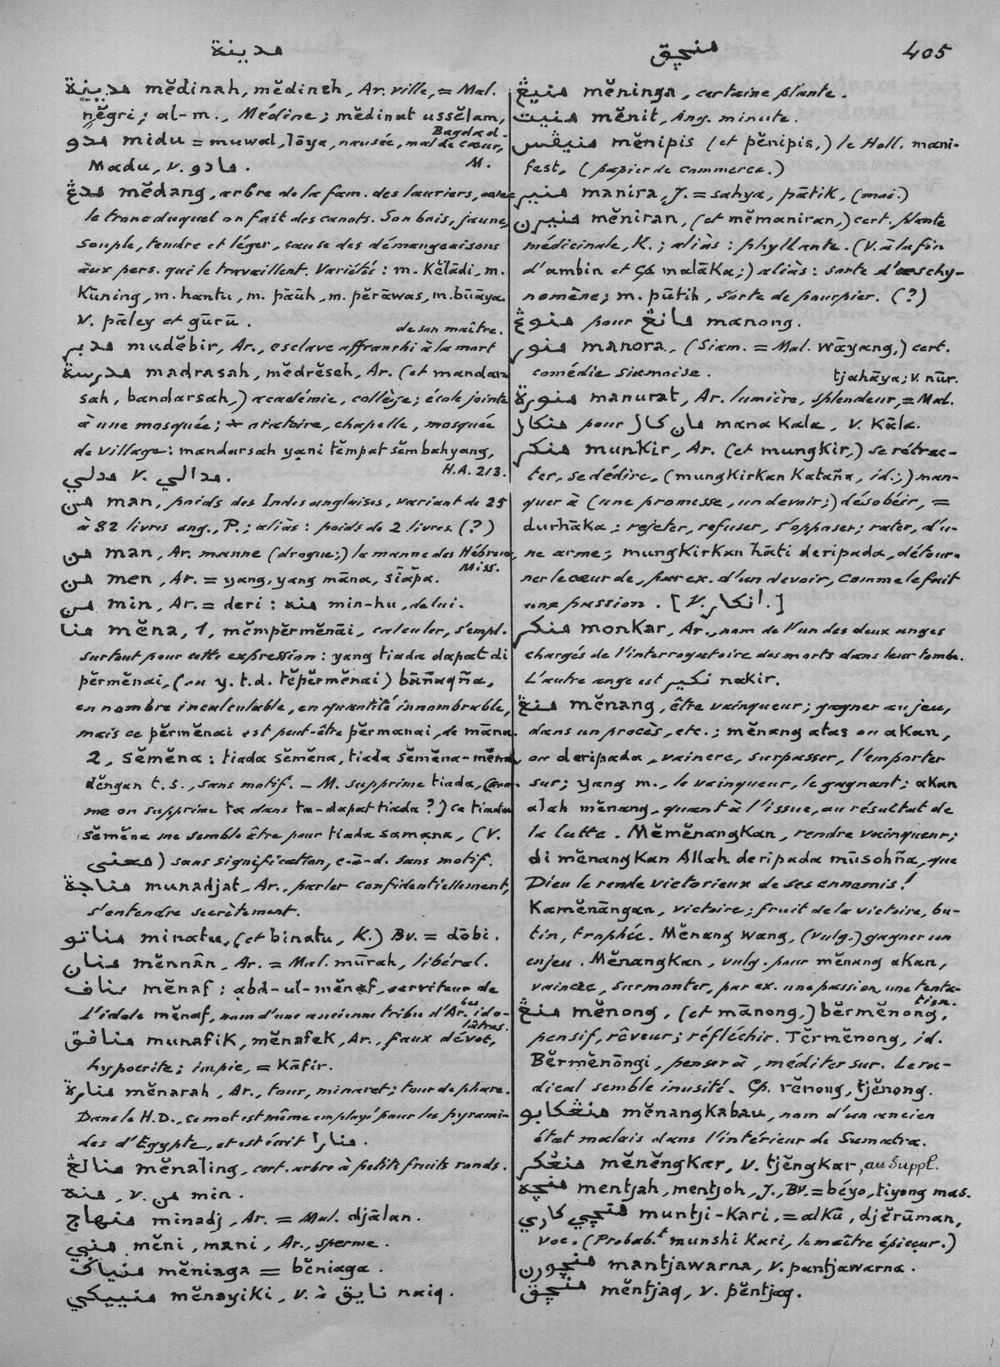 مدينة
منچق
405
مدينة mĕdinah, mĕdineh, Ar. ville, = Mal.
nĕgri; al-m., Médine; mĕdinat ussĕlam,
Bagdad.
مدو midu = muwal, lōya, nausée, mal de cœur,
Madu, v. مادو. M.
مدڠ mĕdang, arbre de la fam. des lauriers, avec
le tronc duquel on fait des canots. Son bois, jaune,
souple, tendre et léger, cause des démangeaisons
aux pers. qui le travaillent. Variétés: m. Kĕlādi, m.
Kūning, m. hantu, m. pāŭh, m. pĕrāwas, m. būāya.
V. pāley et gūrū.
de son maître.
مدبر mudĕbir, Ar., esclave affranchi à la mort
مدرسة madrasah, mĕdrĕseh, Ar. (et mandar
sah, bandarsah,) académie, collège; école jointe
à une mosquée; oratoire, chapelle, mosquée
de village: mandarsah yani tĕmpat sĕmbahyang,
مدلي v. مدالي. H.A. 213.
من man, poids des Indes anglaises, variant de 25
à 82 livres ang., P.; aliàs: poids de 2 livres. (?)
من man, Ar. manne (drogue;) la manne des Hébreux,
Miss.
من men, Ar. = yang, yang māna, sīāpa.
من min, Ar. = deri: منه min-hu, de lui.
منا mĕna, 1, mĕmpĕrmĕnāi, calculer, s'empl.
surtout pour cette expression: yang tiada dapat di
pĕrmĕnai, (ou y. t. d. tĕpĕrmĕnai) bāñaqña,
en nombre incalculable, en quantité innombrable,
mais ce pĕrmĕnai est peut-être pĕrmanai, de māna.
2, sĕmĕna: tiada sĕmĕna, tiada sĕmĕna-mĕna
dĕngan t. s., sans motif. — M. supprime tiada, (com-
me on supprime ta dans ta-dapat tiada?) Ce tiada
sĕmĕna me semble être pour tiada samana, (V.
معنى) sans signification, c-à-d. sans motif.
مناجة munadjat, Ar., parler confidentiellement,
s'entendre secrètement.
مناتو minatu, (et binatu, K.) Bv. = dōbi.
منان mĕnnān, Ar. = Mal. mūrah, libéral.
مناف mĕnaf: abd-ul-mĕnaf, serviteur de
l'idole mĕnaf, nom d'une ancienne tribu d'Arabes ido-
lâtres.
منافق munafik, mĕnafek, Ar., faux dévot,
hypocrite; impie, = Kāfir.
منارة mĕnarah, Ar., tour, minaret; tour de phare.
Dans le H.D., ce mot est même employé pour les pyrami-
des d'Egypte, et est écrit منارا.
منالڠ mĕnaling, cert. arbre à petits fruits ronds.
منه, v. من min.
منهاج minadj, Ar. = Mal. djālan.
مني mĕni, mani, Ar., sperme.
منياݢ mĕniaga = bĕniaga.
منييكي mĕnayiki, v. à نايق naiq.
منيڠ mĕninga, certaine plante.
منيت mĕnit, Ang. minute.
منيڤس mĕnipis (et pĕnipis,) le Holl. mani-
fest. (papier de commerce.)
منير manira, J. = sahya, pātik, (moi.)
منيرن mĕniran, (et mĕmaniran,) cert. plante
médicinale, K.; aliàs: phyllante. (V. à la fin
d'ambin et Cf. malāKa;) aliàs: sorte d'æschy-
nomène; m. pūtih, sorte de pourpier. (?)
منوڠ pour مانڠ manong.
منور manora, (Siam. = Mal. wāyang,) cert.
comédie siamoise.
tjahāya; v. nūr.
منورة manurat, Ar. lumière, splendeur, = Mal.
منكار pour مان كال mana Kala, v. Kāla.
منكر munKir, Ar. (et mungKir,) se rétrac-
ter, se dédire, (mungKirKan Kataña, id.;) man-
quer à (une promesse, un devoir;) désobéir, =
durhāKa; rejeter, refuser, s'opposer; rater, d'u-
ne arme; mungKirKan hāti deripada, détour-
ner le cœur de, par ex. d'un devoir, comme le fait
une passion. [V. انكار.]
منكر monKar, Ar., nom de l'un des deux anges
chargés de l'interrogatoire des morts dans leur tombe.
L'autre ange est نكير naKir.
منڠ mĕnang, être vainqueur; gagner au jeu,
dans un procès, etc.; mĕnang atas ou aKan,
ou deripada, vaincre, surpasser, l'emporter
sur; yang m., le vainqueur, le gagnant; aKan
alah mĕnang, quant à l'issue, au résultat de
la lutte. MĕmĕnangKan, rendre vainqueur;
di mĕnangKan Allah deripada mūsohña, que
Dieu le rende victorieux de ses ennemis!
Kamĕnāngan, victoire; fruit de la victoire, bu-
tin, trophée. Mĕnang wang, (vulg.) gagner un
enjeu. MĕnangKan, vulg. pour mĕnang aKan,
vaincre, surmonter, par ex. une passion, une tenta-
tion.
منڠ mĕnong, (et mānong,) bĕrmĕnong,
pensif, rêveur; réfléchir. Tĕrmĕnong, id.
Bĕrmĕnōngi, penser à, méditer sur. Le ra-
dical semble inusité. Cp. rĕnong, tjĕnong.
منڠكابو mĕnangKabau, nom d'un ancien
état malais dans l'intérieur de Sumatra.
منڠكر mĕnĕngKar, v. tjĕngKar, au Suppl.
منچه mentjah, mentjoh, J., Bv. = béyo, tiyong mas.
منچي كاري muntji-Kari, = alKū, djĕrūman,
voc. (Probabt. munshi Kari, le maître épiceur.)
منچورن mantjawarna, v. pantjawarna.
منچق mĕntjaq, v. pĕntjaq.